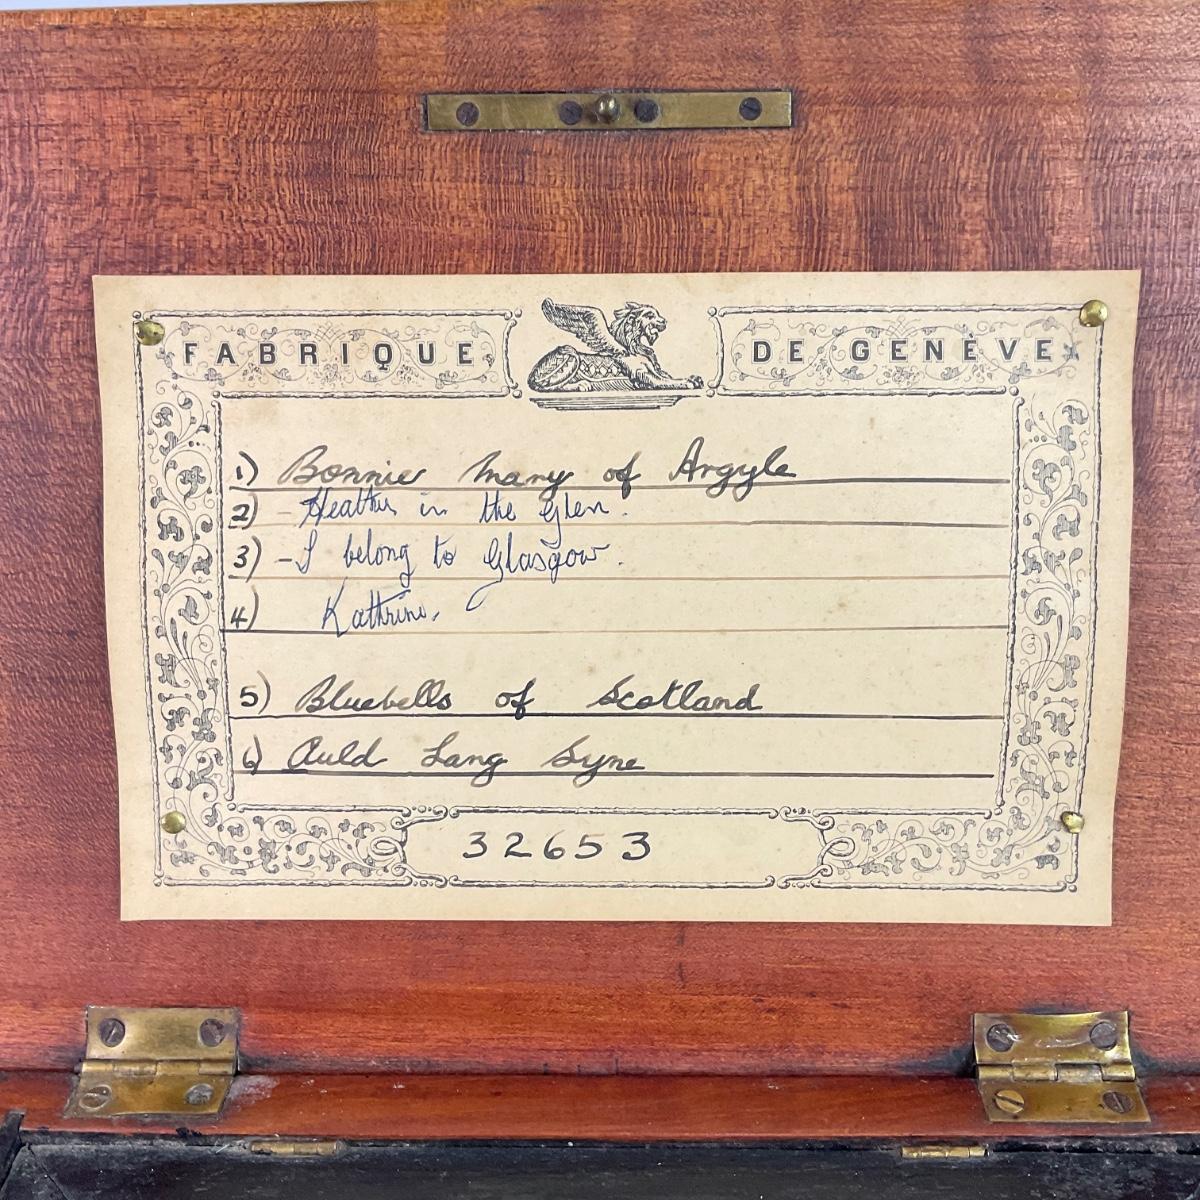 FABRIQUE DE GENÈVE
1) Bonnie Mary of Argyle
2) - Heather in the Glen.
3) - I belong to Glasgow.
4) Kathrine.
5) Bluebells of Scotland
6) Auld Lang Syne
32653